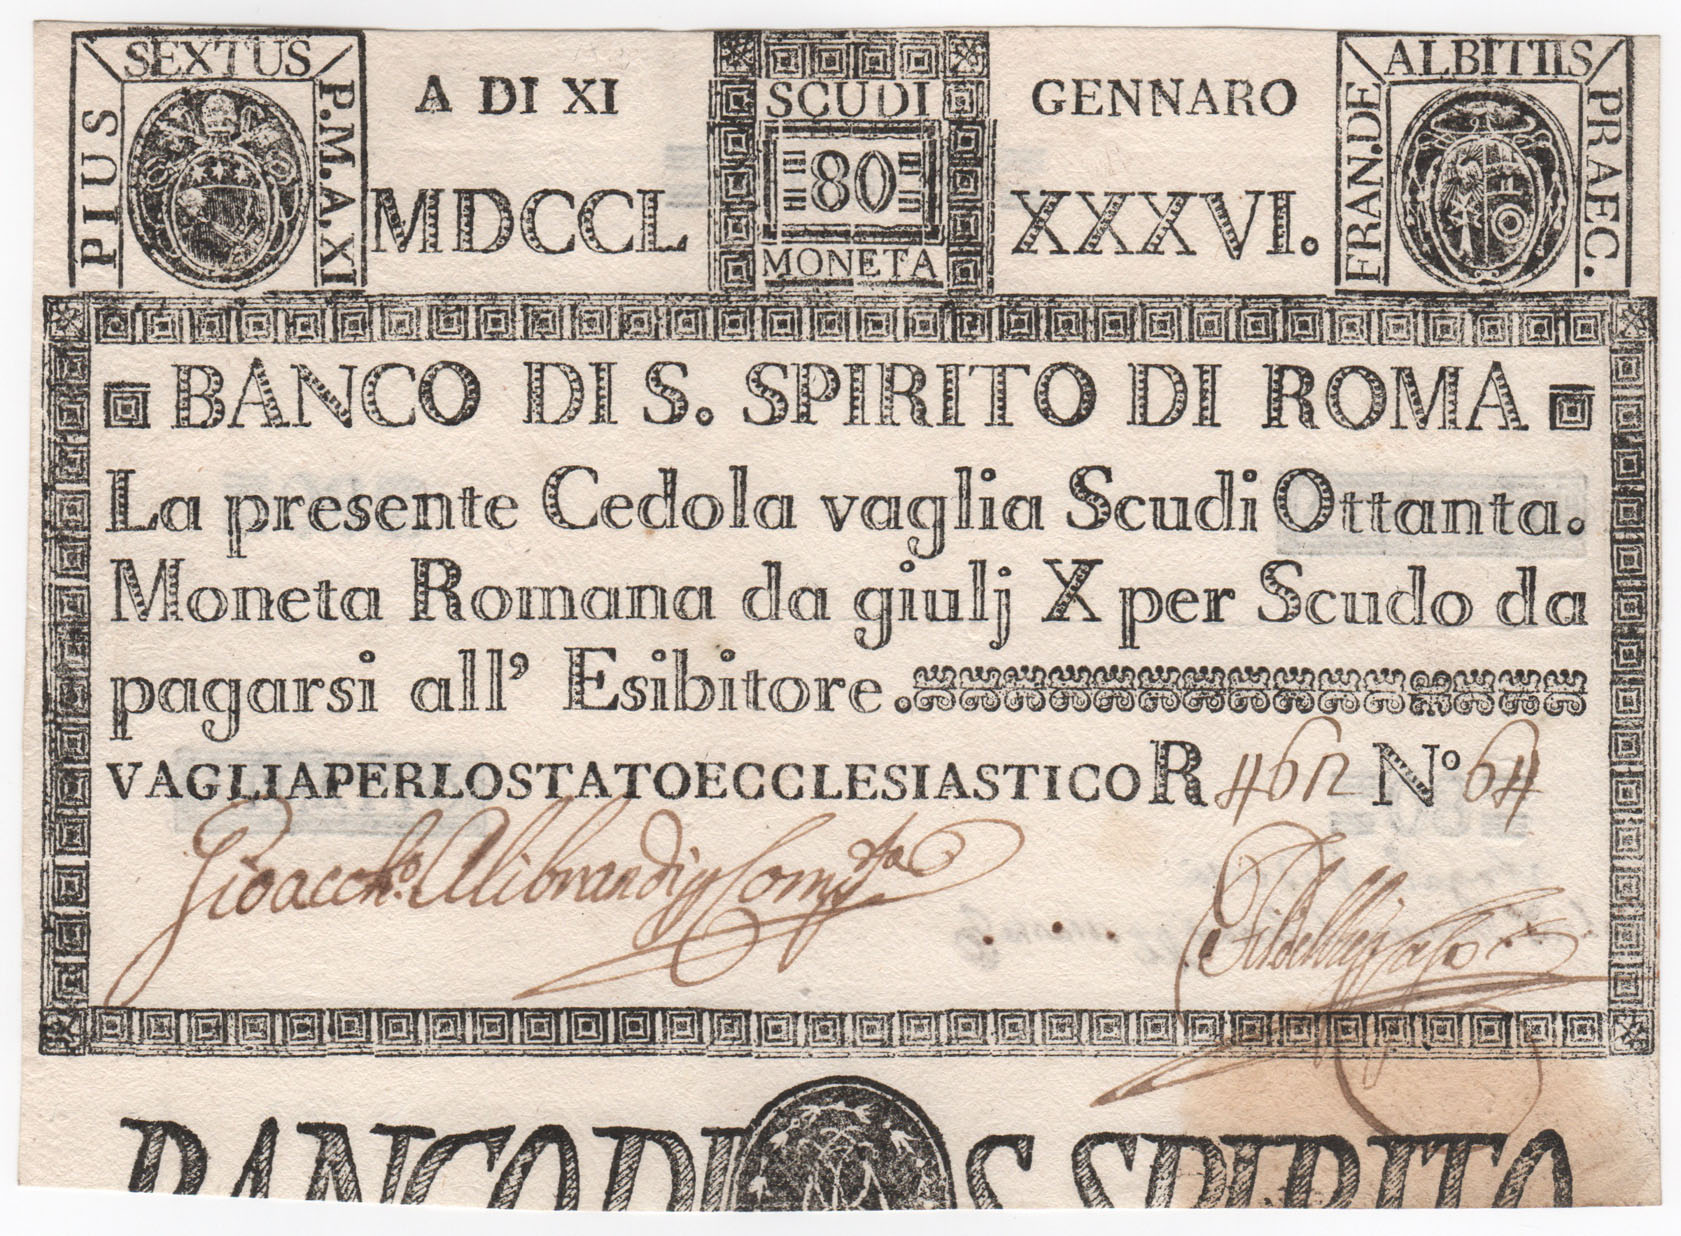 PIUS SEXTUS P.M.A.XI
A DI XI
GENNARO
MDCCL
XXXVI.
SCUDI
80
MONETA
FRAN.DE ALBITIIS PRAEC.
BANCO DI S. SPIRITO DI ROMA
La presente Cedola vaglia Scudi Ottanta.
Moneta Romana da giulj X per Scudo da
pagarsi all' Esibitore.
VAGLIA PER LO STATO ECCLESIASTICO R 4612 No 64
Gioacch.o Alibrandi
BANCO DI S. SPIRITO